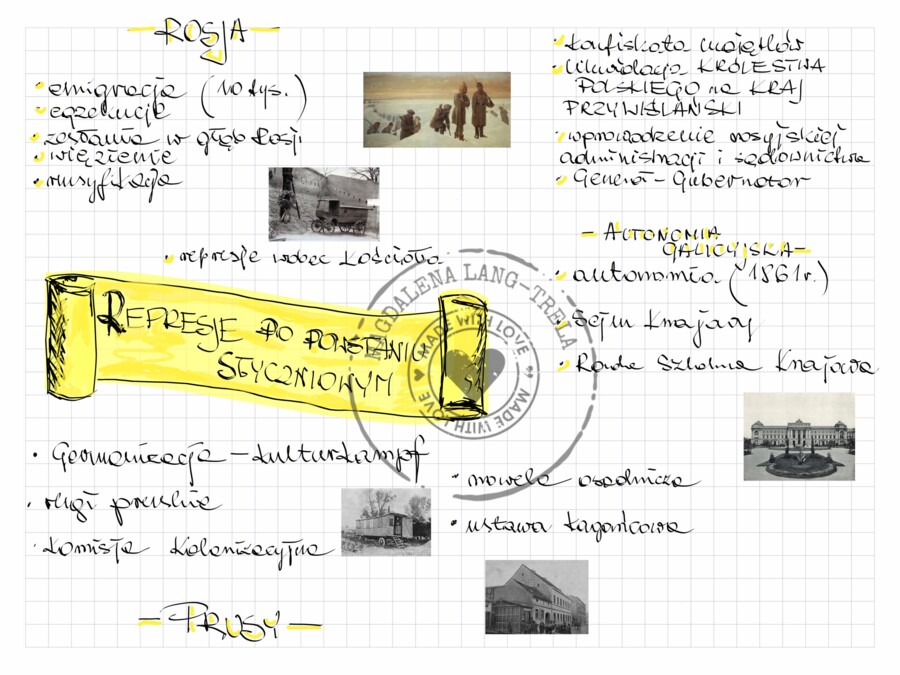 - ROSJA -
• emigracja (10 tys.)
• egzekucje
• zesłania w głąb Rosji
• więzienie
• rusyfikacja
• represje wobec Kościoła
• konfiskata majątków
• likwidacja KRÓLESTWA
POLSKIEGO na KRAJ
PRZYWIŚLAŃSKI
• wprowadzenie rosyjskiej
administracji i sądownictwa
• Generał-Gubernator
- AUTONOMIA
GALICYJSKA -
• autonomia (1861r.)
• Sejm Krajowy
• Rada Szkolna Krajowa
REPRESJE PO POWSTANIU
STYCZNIOWYM
MAGDALENA LANG-TRELA
MADE WITH LOVE
MADE WITH LOVE
• Germanizacja - Kulturkampf
• rugi pruskie
• Komisja Kolonizacyjna
• nowela osadnicza
• ustawa kagańcowa
- PRUSY -